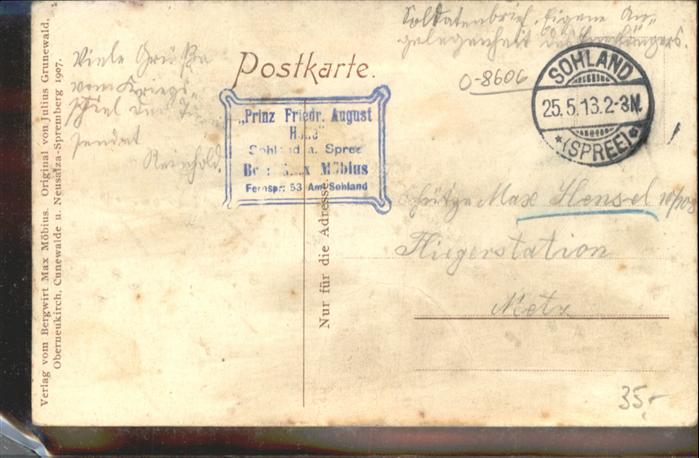 Soldatenbrief. Eigene An-
gelegenheit des Empfängers.
Postkarte.
0-8606
SOHLAND
25.5.13.2-3N.
*(SPREE)*
Viele Grüße
vom Kriegs-
spiel der
sendet
Reinhold.
„Prinz Friedr. August
Höhe"
Sohland a. Spree
Bes.: Max Möbius
Fernspr: 53 Amt Sohland
Schütze Max Hensel
Fliegerstation
Metz
Nur für die Adresse.
Verlag vom Bergwirt Max Möbius. Original von Julius Grunewald,
Oberneukirch, Cunewalde u. Neusalza-Spremberg 1907.
35,-